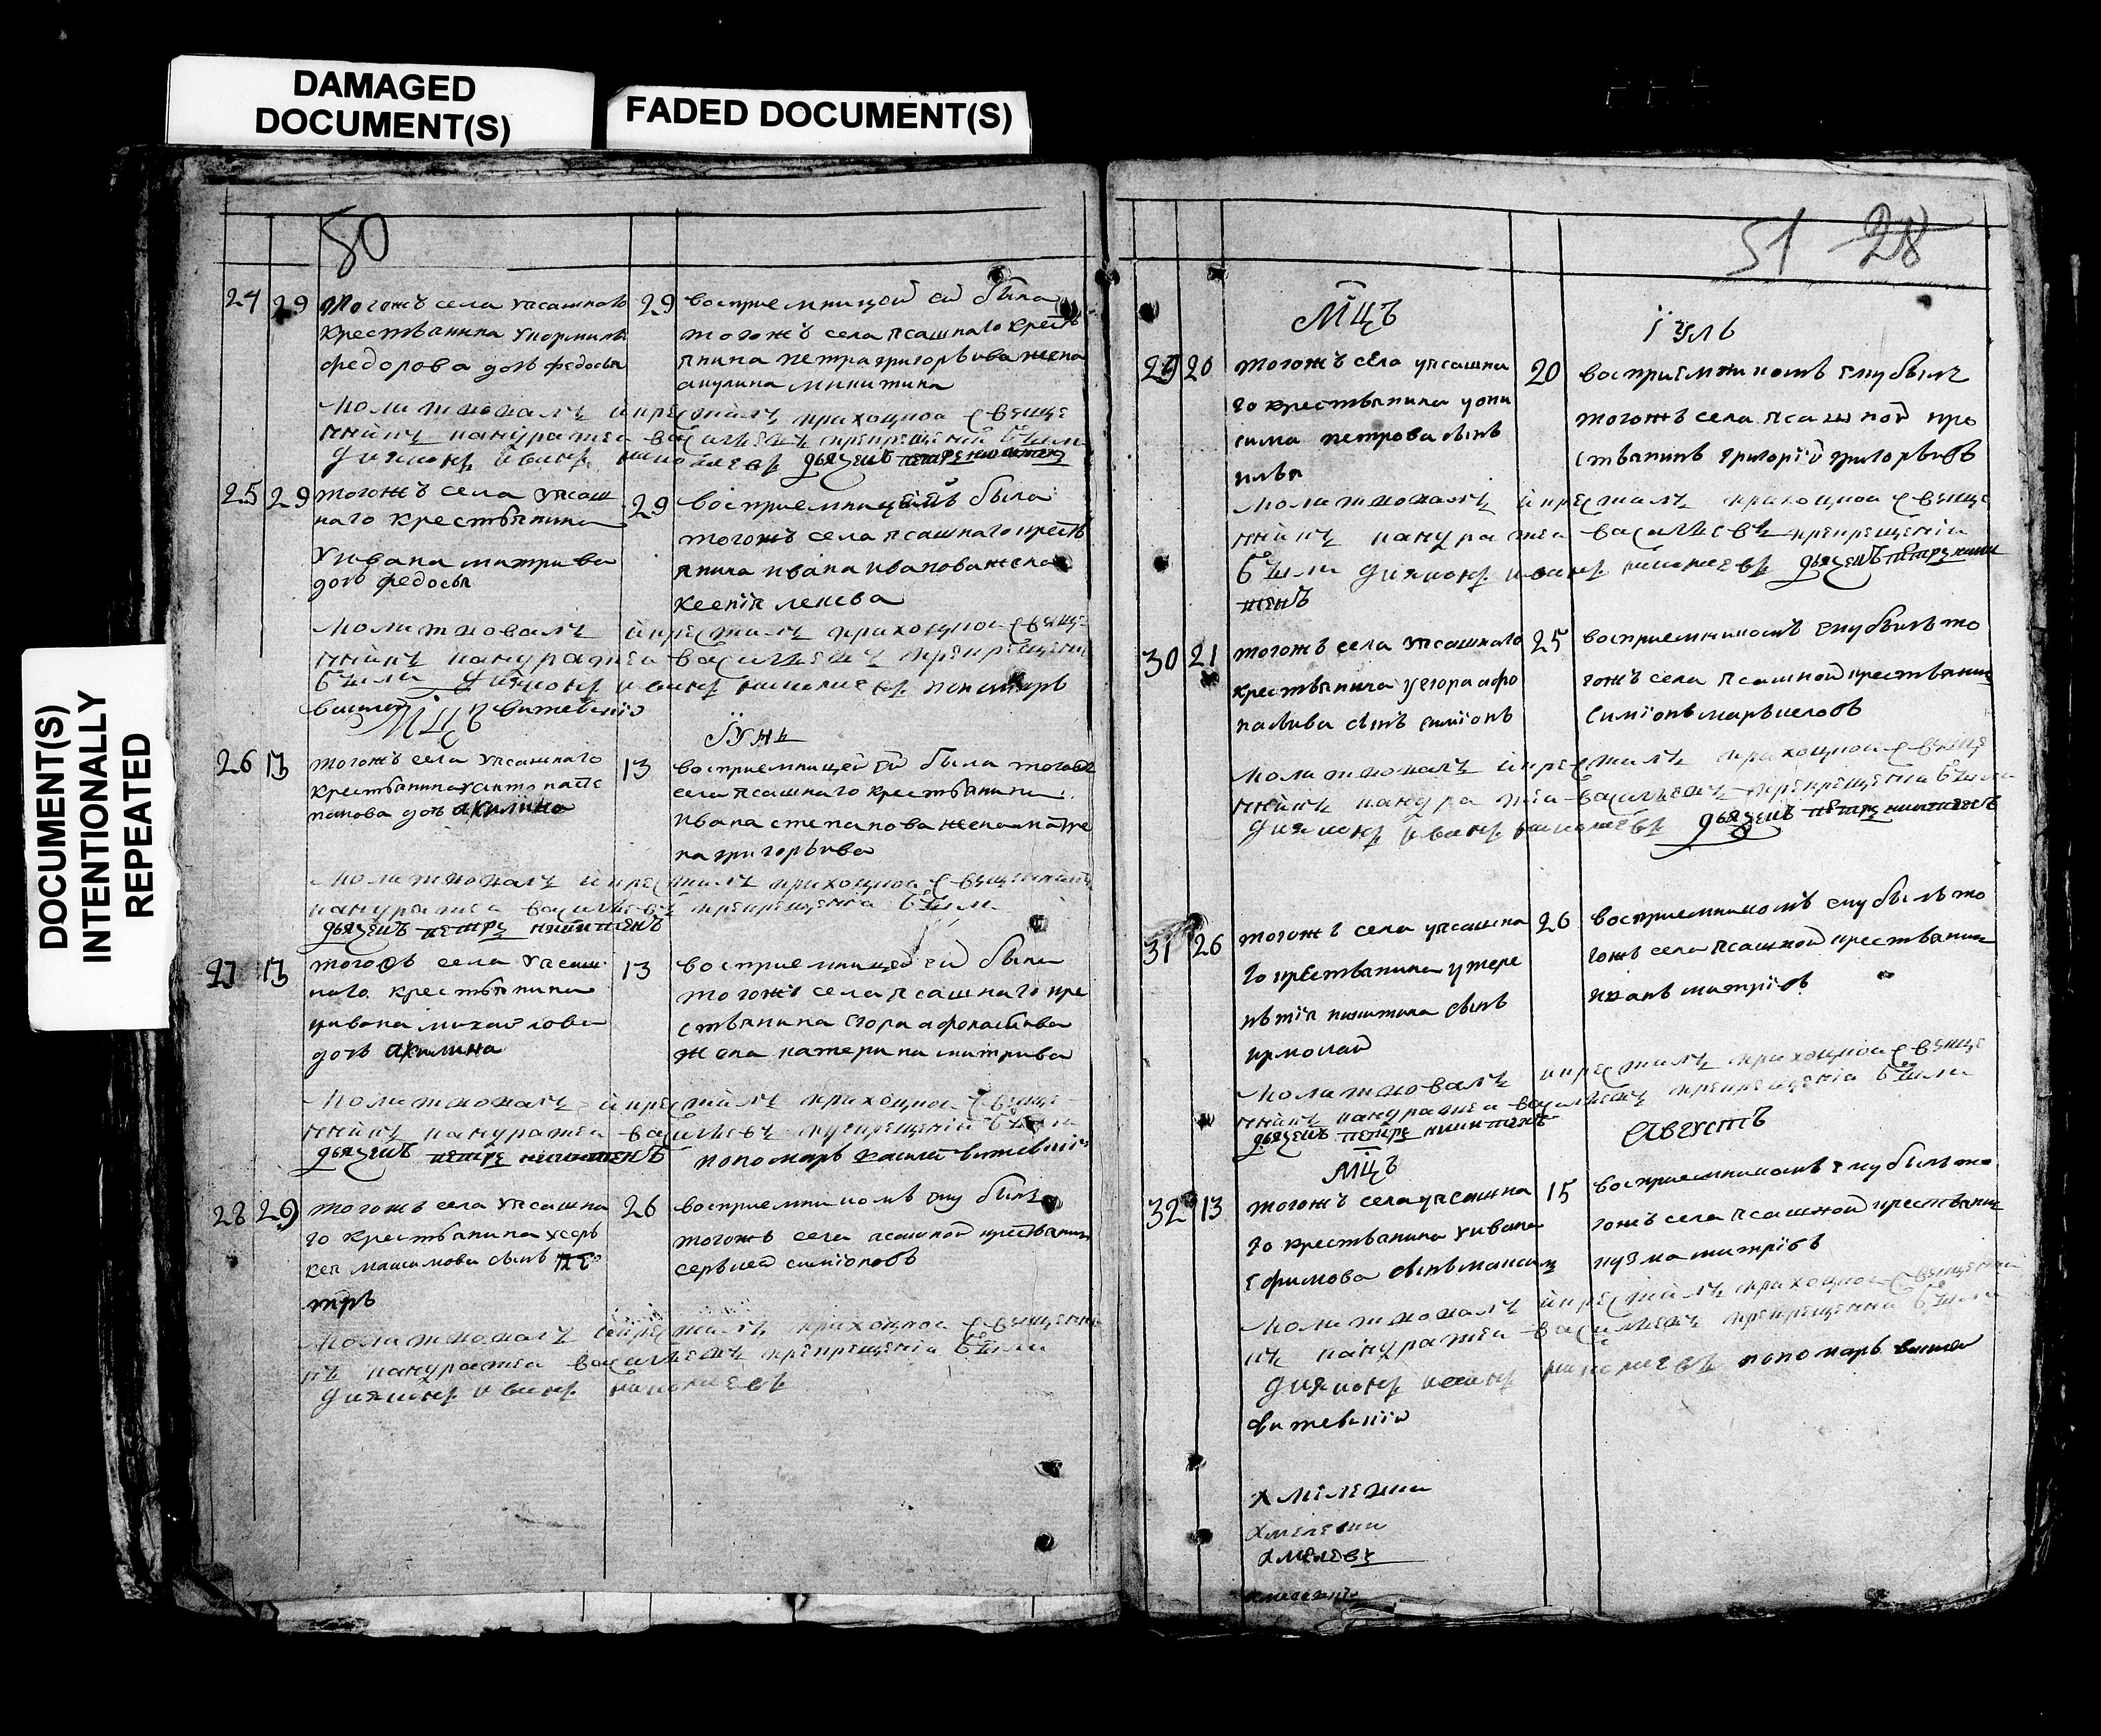 DAMAGED
DOCUMENT(S)
FADED DOCUMENT(S)
DOCUMENT(S)
INTENTIONALLY
REPEATED
50
24 29 тогожъ села упсашнаго
крестьянина
федорова дочь федосья
29 восприемницой ей была
тогожъ села псашнаго крестъ
янина петра григорьива жена
акулина микитина
молитвовалъ и крестилъ приходцкои свяще
нникъ васильевъ прикрещении были
дияконъ иванъ николаевъ дьячекъ петръ никитенъ
25 29 тогожъ села упсаш
наго крестьянина
увана митрива
дочь федосья
29 восприемницей была
тогожъ села псашнаго крестъ
янина ивана иванова жена
ксения
молитвовалъ и крестилъ приходцкои свяще
нникъ васильевъ прикрещении
были дияконъ иванъ николаевъ пономарь
василей витевский
Мцъ Їунь
26 13 тогожъ села упсашнаго
крестьянина
панова дочь акилина
13 восприемницей ей была тогожъ
села псашнаго крестьянина
ивана степанова жена
на григорьива
молитвовалъ и крестилъ приходцкои священникъ
васильевъ прикрещении были
дьячекъ петръ никитенъ
27 13 тогожъ села упсаш
наго крестьянина
увана михайлова
дочь акилина
13 восприемницей ей была
тогожъ села псашнаго кре
стьянина егора афонасьива
жена катерина митрива
молитвовалъ и крестилъ приходцкои свяще
нникъ васильевъ прикрещении были
дьячекъ петръ никитенъ пономарь василей витевский
28 29 тогожъ села упсашна
го крестьянина усерь
кея машимова сынъ пе
тръ
26 восприемникомъ ему былъ
тогожъ села псашной крестьянинъ
сергией симионовъ
молитвовалъ и крестилъ приходцкои священни
къ васильевъ прикрещении были
дияконъ иванъ николаевъ
51 28
Мцъ Їуль
29 20 тогожъ села упсашна
го крестьянина уони
сима петрова сынъ
илья
20 восприемникомъ ему былъ
тогожъ села псашной кре
стьянинъ григорий григорьивъ
молитвовалъ и крестилъ приходцкои свяще
нникъ васильевъ прикрещении
были дияконъ иванъ николаевъ дьячекъ петръ ники
тенъ
30 21 тогожъ села упсашнаго
крестьянина уегора афо
насьива сынъ симионъ
25 восприемникомъ ему былъ то
гожъ села псашной крестьянинъ
симионъ маръкеловъ
молитвовалъ и крестилъ приходцкои свяще
нникъ васильевъ прикрещении были
дияконъ иванъ николаевъ дьячекъ петръ никитенъ
31 26 тогожъ села упсашна
го крестьянина утере
нътия никитина сынъ
ирмолай
26 восприемникомъ ему былъ то
гожъ села псашной крестьянинъ
иванъ митриевъ
молитвовалъ и крестилъ приходцкои свяще
нникъ васильевъ прикрещении были
дьячекъ петръ никитенъ
Мцъ Августъ
32 13 тогожъ села упсашна
го крестьянина увана
ефимова сынъ максимъ
15 восприемникомъ ему былъ то
гожъ села псашной крестьянинъ
кузма митриевъ
молитвовалъ и крестилъ приходцкои священни
къ васильевъ прикрещении были
дияконъ иванъ николаевъ пономарь василей
витевский